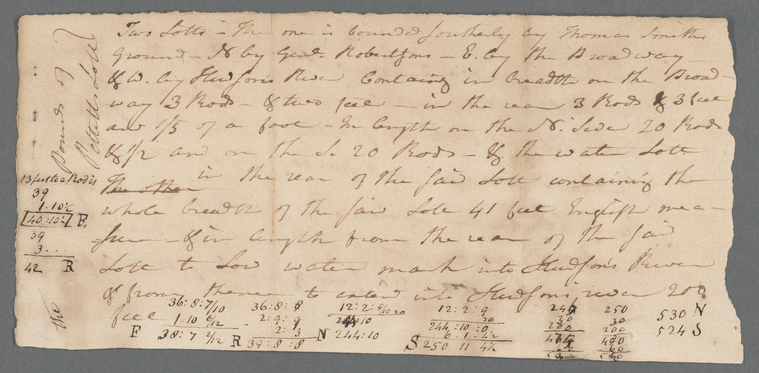 Two Lotts – The one is bounded southerly by Thomas Smiths
Ground – N by Genl. Robertsons – E. by the Broadway
& W. by Hudsons River Containg in breadth on the Broad-
way 3 Rods – & two feet – in the rear 3 Rods & 3 feet
and 1/5 of a foot – In length on the N. Side 20 Rods
& 1/2 and on the S. 20 Rods – & the water Lott
The other in the rear of the said Lott containing the
whole breadth of the said Lott 41 feet English mea-
sure – & in length from the rear of the said
Lott to Low water mark into Hudsons River
& from thence to extend into Hudsons river 200
feet
Bounds of
the Lott
13 feet to a Rod is
39
1.10 1/2
40:10 1/2 F.
39
3...
42 R
36:8:7/10
1.10 6/12
F 38:7 2/12
36:8:8
2:9:9
2:3
R 39:8:8
12:2:9/10
20
N 244:10
12:2:9
20
244:10:0
6:1:4 1/2
S 250 11 4 1/2
240
30
200
250
30
200
530 N
524 S